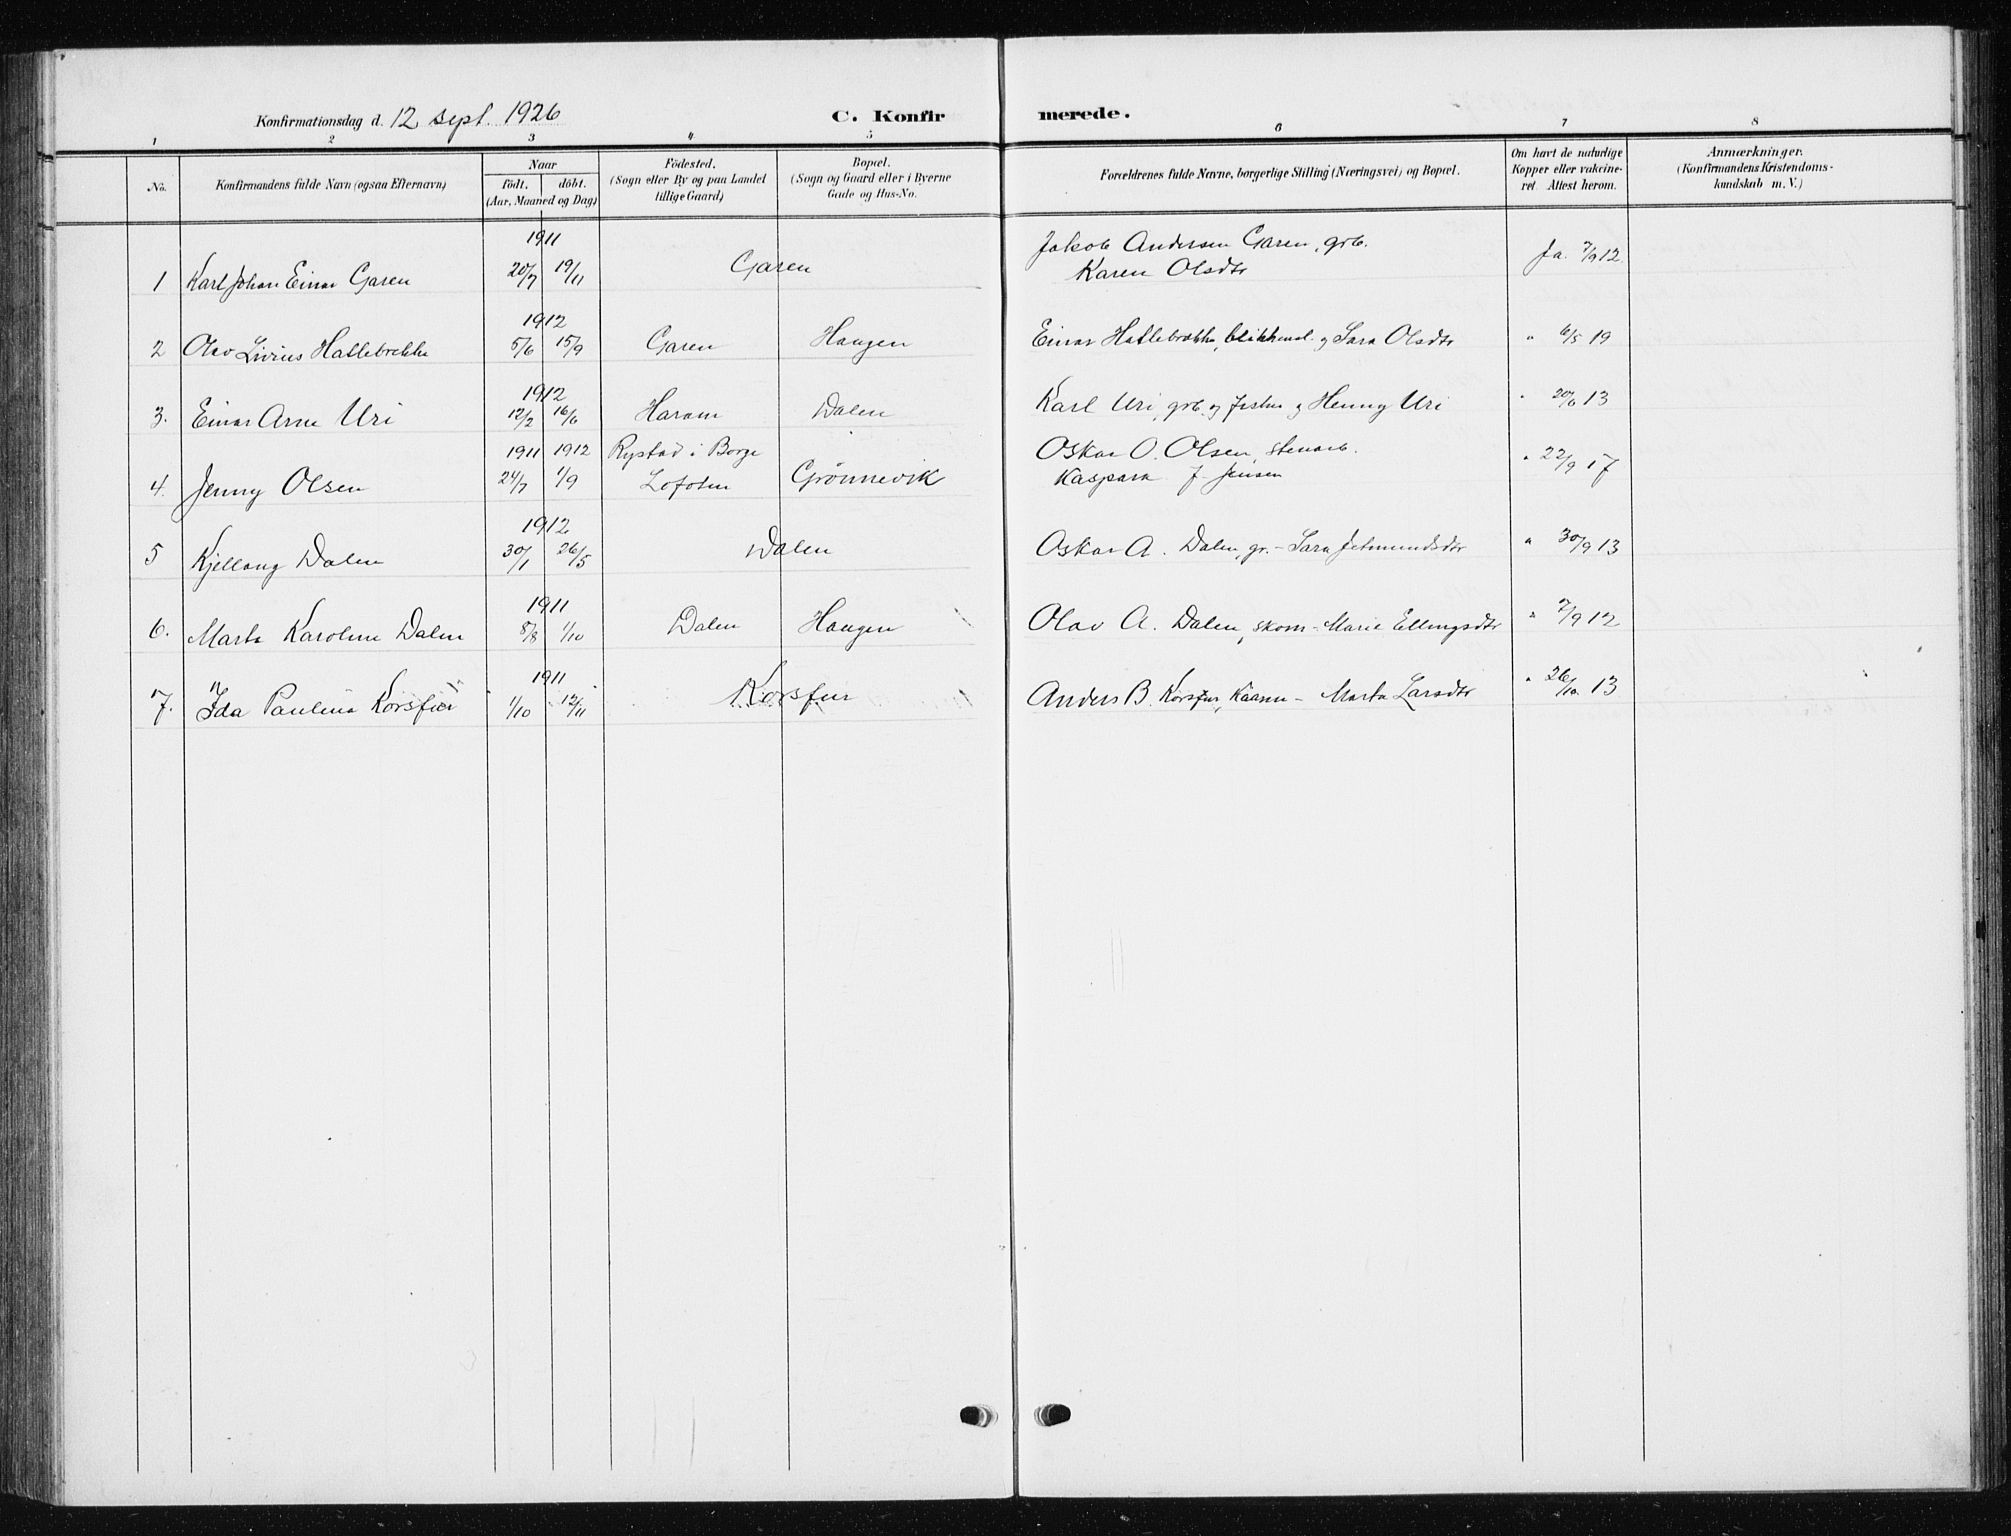 Konfirmationsdag d. 12 sept. 1926 C. Konfirmerede.
1 2 3 4 5 6 7 8
No. Konfirmandens fulde Navn (ogsaa Efternavn) Naar födt. döbt. (Aar, Maaned og Dag) Födested. (Sogn eller By og paa Landet tillige Gaard) Bopæl. (Sogn og Gaard eller i Byerne Gade og Hus-No. Forældrenes fulde Navne, borgerlige Stilling (Næringsvei) og Bopæl. Om havt de naturlige Kopper eller vakcineret. Attest herom. Anmærkninger. (Konfirmandens Kristendomskundskab m. V.)
1911 Jakob Andersen Garen, grb.
1 Karl Johan Einar Garen 20/7 19/11 Garen Karen Olsdtr Ja. 7/9 12
1912
2 Olav Livius Hallebrekke 5/6 15/9 Garen Haugen Einar Hallebrekke, blikkensl. og Sara Olsdtr " 6/5 19
1912
3. Einar Arne Uri 12/2 16/6 Haram Dalen Karl Uri, grb. og fisker og Henny Uri " 20/6 13
1911 1912 Rystad i Borge Oskar O. Olsen, stenarb.
4. Jenny Olsen 24/7 1/9 Lofoten Grönnevik Kaspara J. Jensen " 22/9 17
1912
5 Kjellaug Dalen 30/1 26/5 Dalen Oskar A. Dalen, gr. - Sara Jetmundsdtr " 30/9 13
1911
6. Marta Karoline Dalen 8/8 1/10 Dalen Haugen Olav A. Dalen, skom - Marie Ellingsdtr " 7/9 12
1911
7. Ida Paulina Korsfur 1/10 12/11 Korsfur Anders B. Korsfur, Kaarm - Marta Larsdtr " 26/10 13